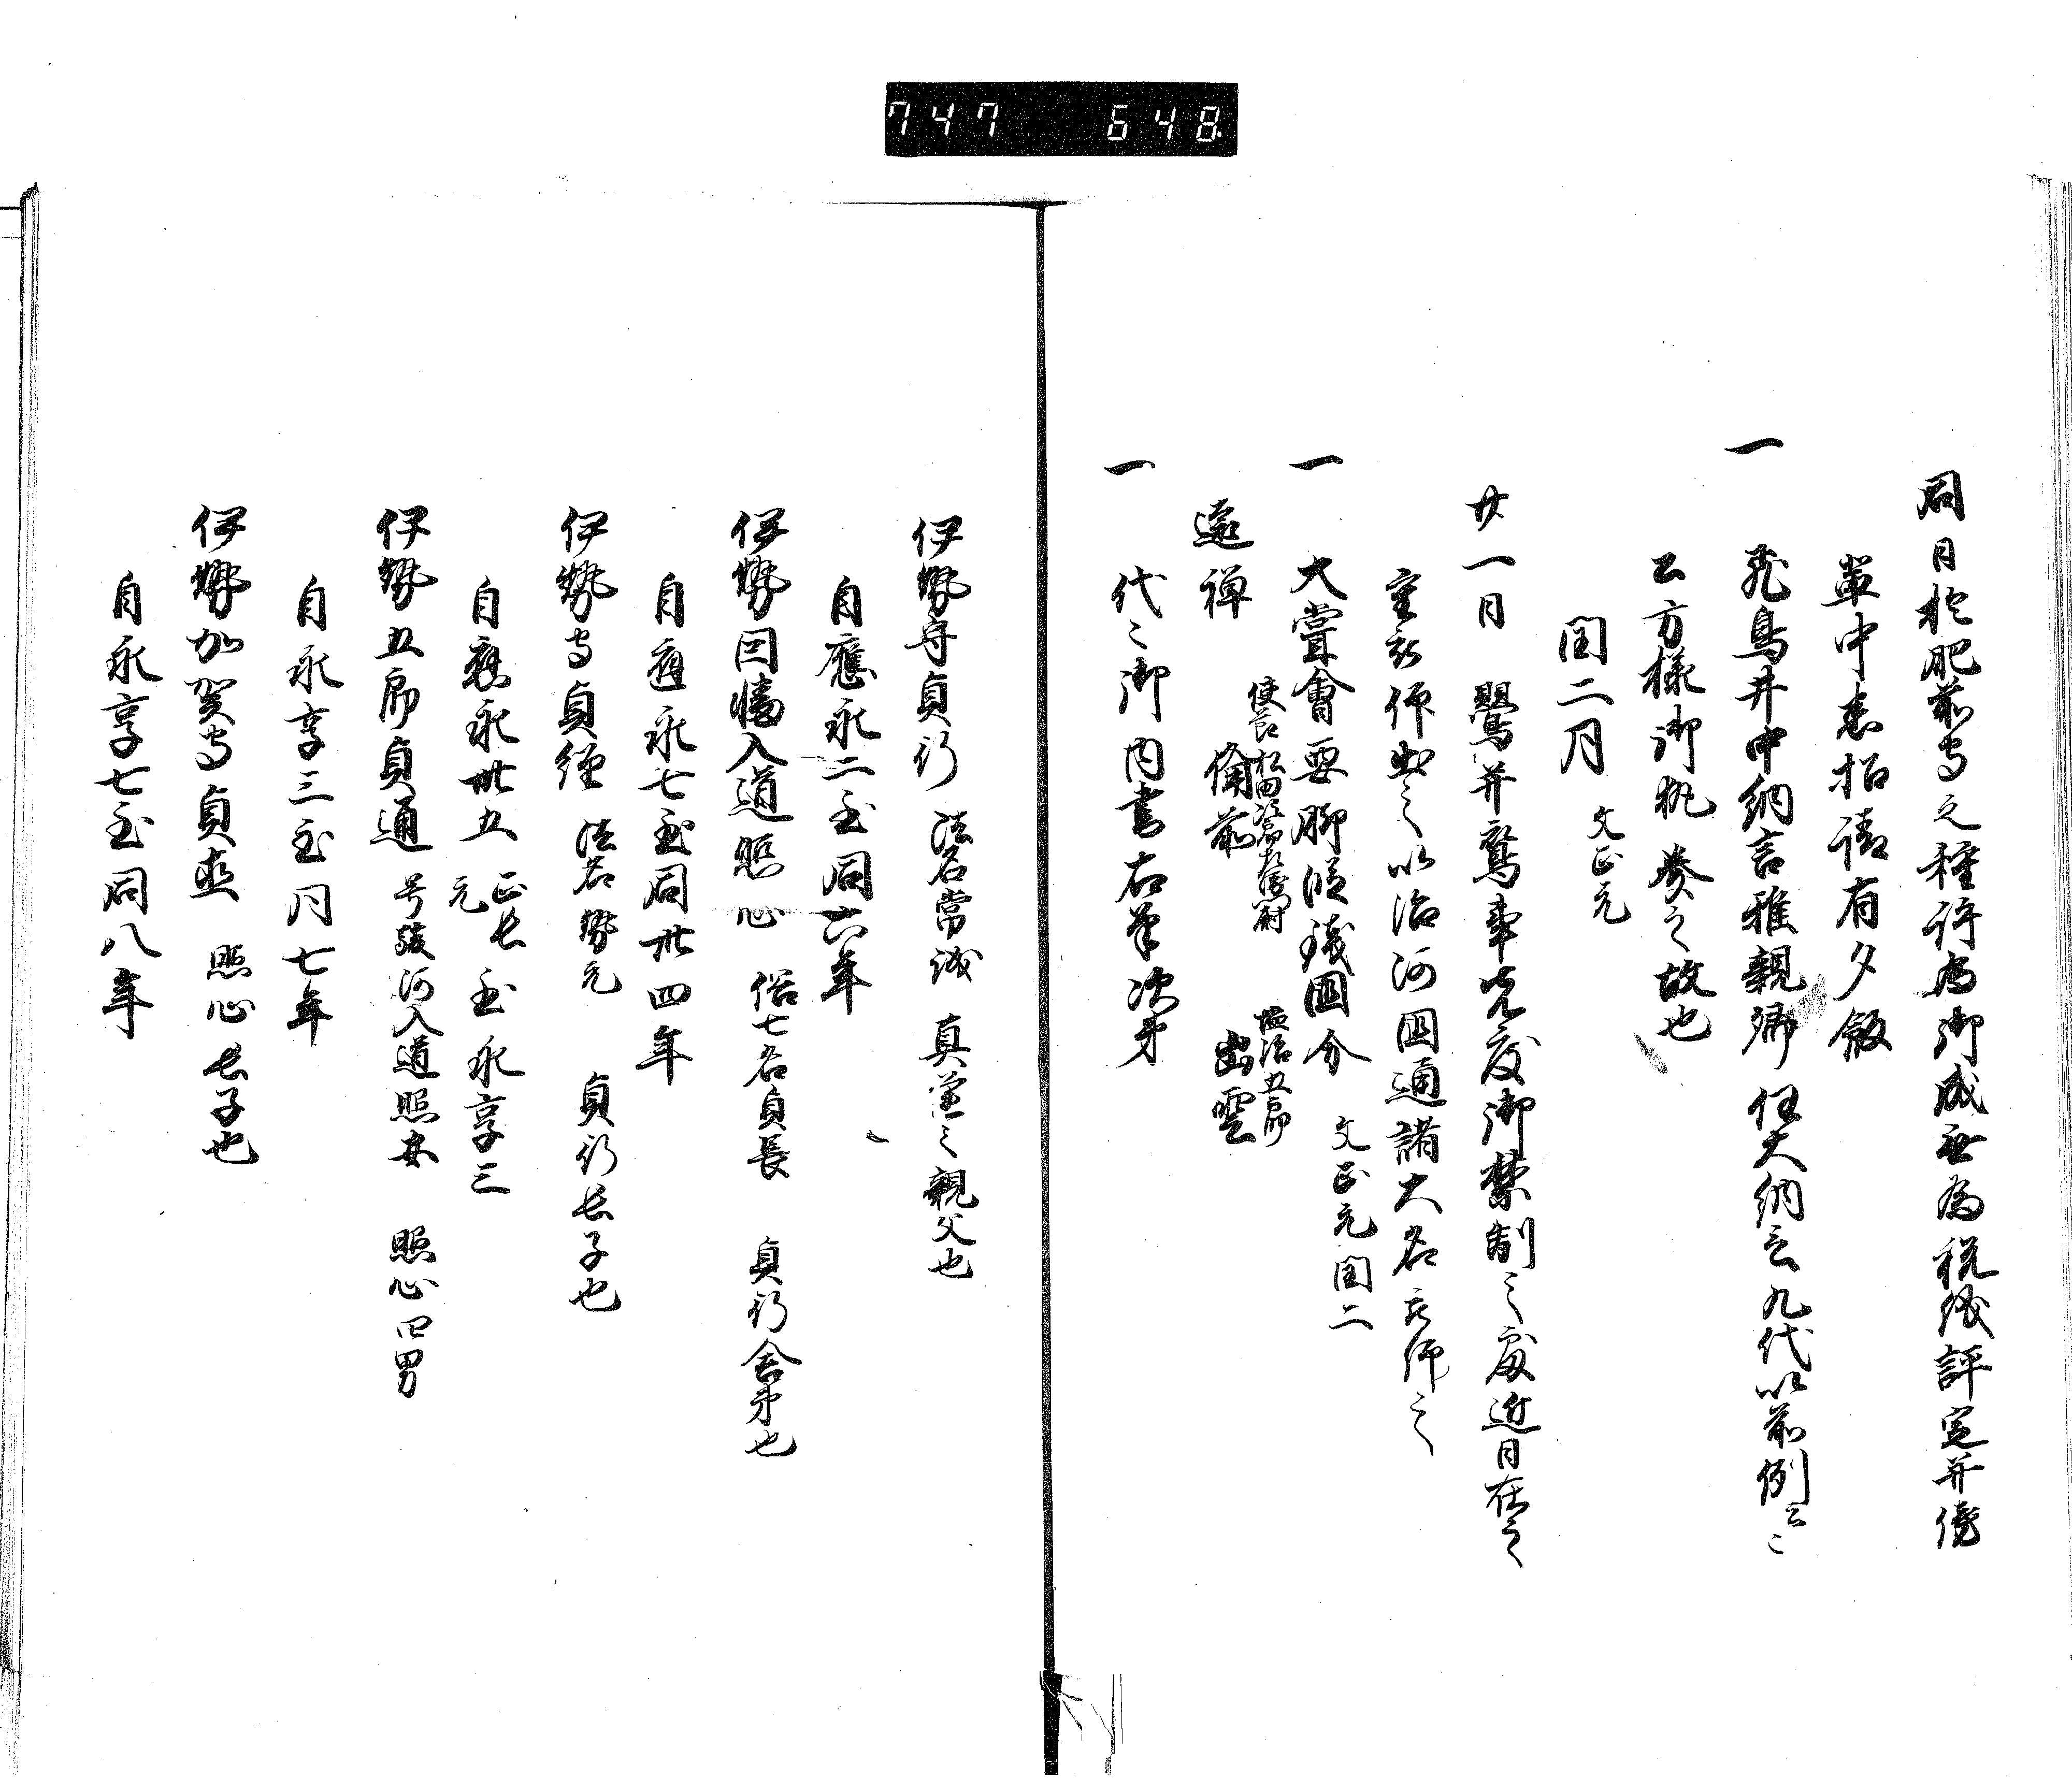 747 648
同日於肥前守之種許為御成無為祝儀評定并傍
輩中悉招請有夕飯
一 飛鳥井中納言雅親卿任大納言九代以前例云々
公方様御執奏之故也
閏二月 文正元
廿一日 鷺并鴛事先度御禁制之處近日在之
重被仰出之以治河国通諸大名被仰之
一 大嘗會要脚段銭国分 文正元閏二
還禅 使節松田 備前 塩冶五郎 出雲
一 代々御内書右筆次第
伊勢守貞行 法名常誠 真蓮之親父也
自應永二至同六年
伊勢因幡入道照心 俗七名貞長 貞行舎弟也
自應永七至同卅四年
伊勢守貞經 法名勢元 貞行長子也
自應永卅五 正長元 至永享三
伊勢五郎貞通 号駿河入道照安 照心四男
自永享三至同七年
伊勢加賀守貞直 照心長子也
自永享七至同八年